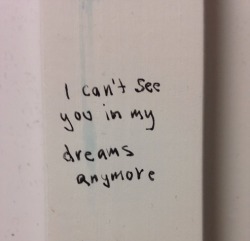 I can't see
you in my
dreams
anymore